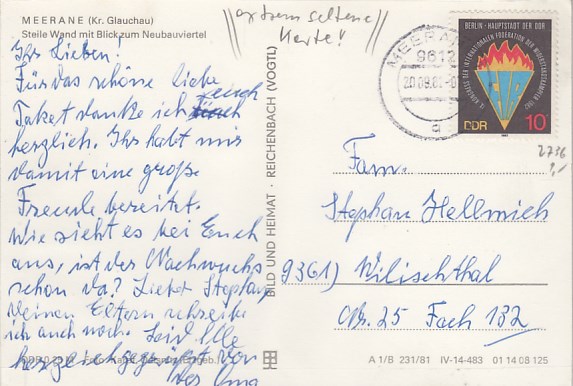 MEERANE (Kr. Glauchau)
Steile Wand mit Blick zum Neubauviertel
Ihr Lieben!
Für das schöne liebe
Paket danke ich euch
herzlich. Ihr habt mir
damit eine große
Freude bereitet.
Wie sieht es bei Euch
aus, ist der Nachwuchs
schon da? Lieber Stephan,
Deinen Eltern schreibe
ich auch noch. Seid Alle
herzlich gegrüßt von
der Oma
BILD UND HEIMAT · REICHENBACH (VOGTL)
extrem seltene
Karte!
MEERANE
9612
BERLIN · HAUPTSTADT DER DDR
FIR
DDR
10
2736
Fam.
Stephan Hellmich
9361) Wilischthal
Nr. 25 Fach 132
A 1/B 231/81 IV-14-483 01 14 08 125